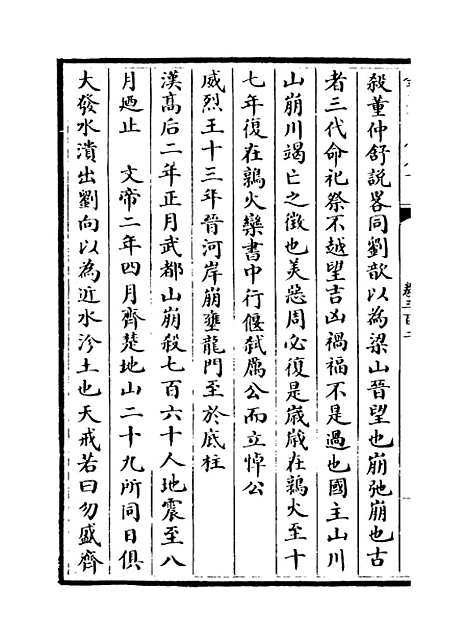 殺董仲舒説畧同劉歆以為梁山晉望也崩弛崩也古
者三代命祀祭不越望吉凶禍福不是過也國主山川
山崩川竭亡之徵也美惡周必復是嵗嵗在鶉火至十
七年復在鶉火欒書中行偃弑厲公而立悼公
威烈王十三年晉河岸崩壅龍門至於底柱
漢髙后二年正月武都山崩殺七百六十人地震至八
月廼止　文帝二年四月齊楚地山二十九所同日俱
大發水潰出劉向以為近水沴土也天戒若曰勿盛齊
卷三百二